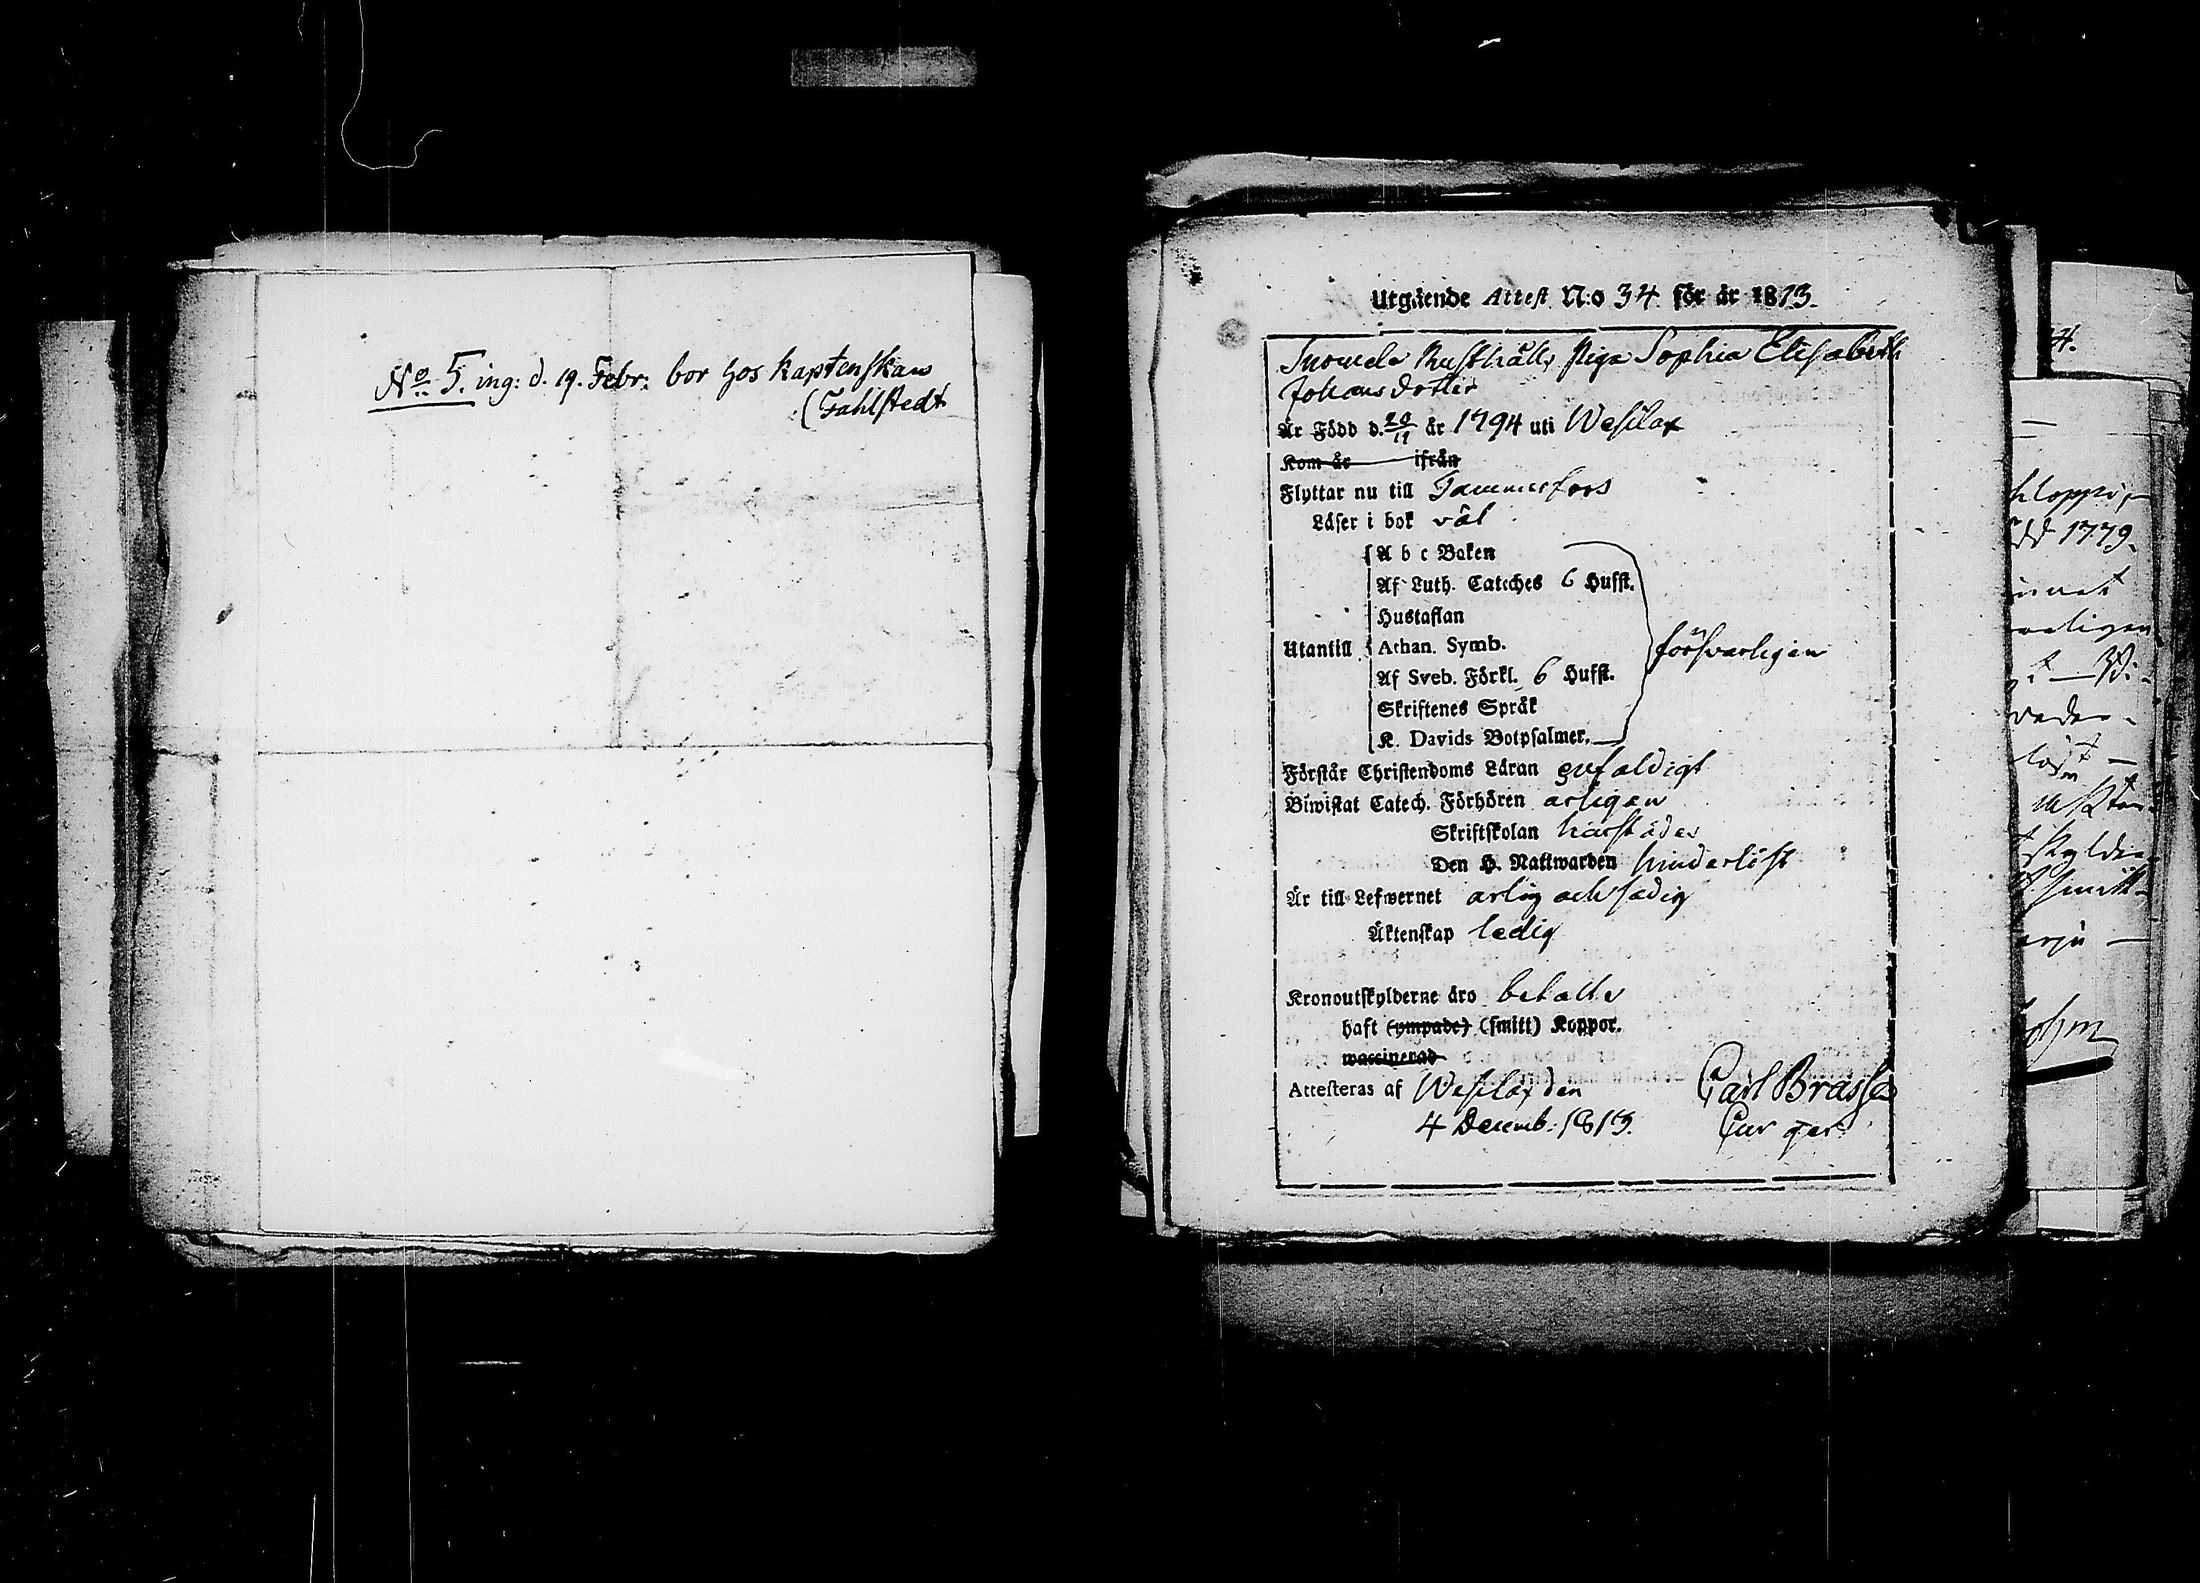 No 5. ing: d. 19. Febr: bor hos Kaptenskan
(Fahlstedt
Utgående Attest N:o 34 för år 1813.
Suomela Rusthålls Piga Sophia Elisabeth
Johans dotter
Är Född d. 20/11 år 1794 uti Wesilax
Kom år ifrån
Flyttar nu till Tammerfors
Läser i bok väl
A b c Boken
Af Luth. Cateches 6 Hufst.
Hustaflan
Utantill Athan. Symb. försvarligen
Af Sveb. Förkl. 6 Hufst.
Skriftenes Språk
K. Davids Botpsalmer.
Förstår Christendoms Läran enfaldigt
Biwistat Catech. Förhören årligen
Skriftskolan härstädes
Den H. Nattwarden hinderlöst
Är till Lefwernet ärlig och sedig
Äktenskap ledig
Kronoutskylderne äro betalte
haft (ympade) (smitt) Koppor.
waccinerad
Attesteras af Wesilax den Carl Brasse
4 Decemb. 1813.
4.
kloppor,
dd 1779.